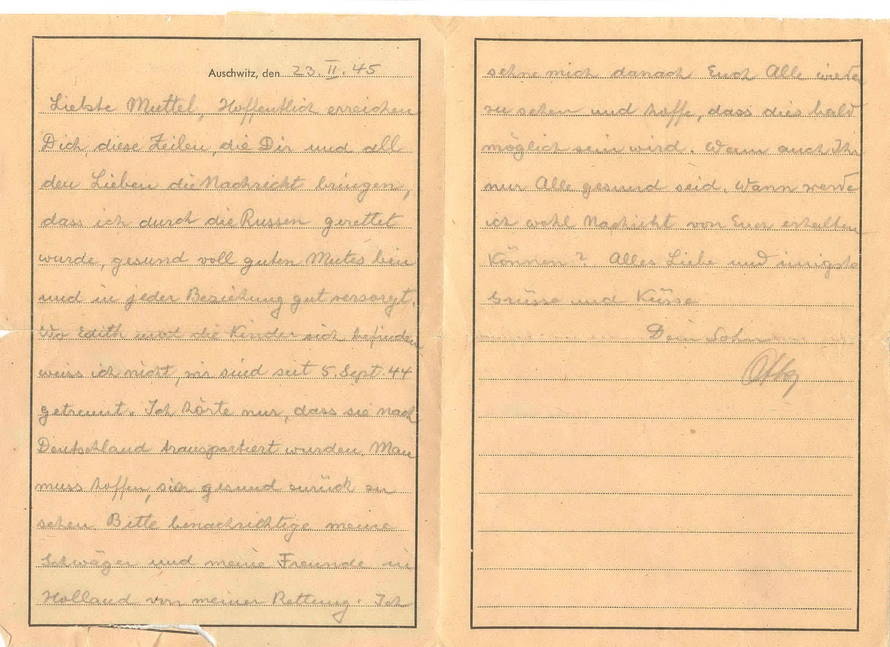 Auschwitz, den 23.II.45
Liebste Muttel, Hoffentlich erreichen
Dich, diese Zeilen, die Dir und all
den Lieben die Nachricht bringen,
dass ich durch die Russen gerettet
wurde, gesund voll guten Mutes bin
und in jeder Beziehung gut versorgt.
Wo Edith und die Kinder sich befinden
weiss ich nicht, wir sind seit 5 Sept. 44
getrennt. Ich hörte nur, dass sie nach
Deutschland transportiert wurden. Man
muss hoffen, sie gesund zurück zu
sehen. Bitte benachrichtige meine
Schwäger und meine Freunde in
Holland von meiner Rettung. Ich
sehne mich danach Euch Alle wieder
zu sehen und hoffe, dass dies bald
möglich sein wird. Wenn auch Ihr
nur Alle gesund seid. Wann werde
ich wohl Nachricht von Euch erhalten
Können? Alles Liebe und innigste
Grüsse und Küsse
Dein Sohn
Otto